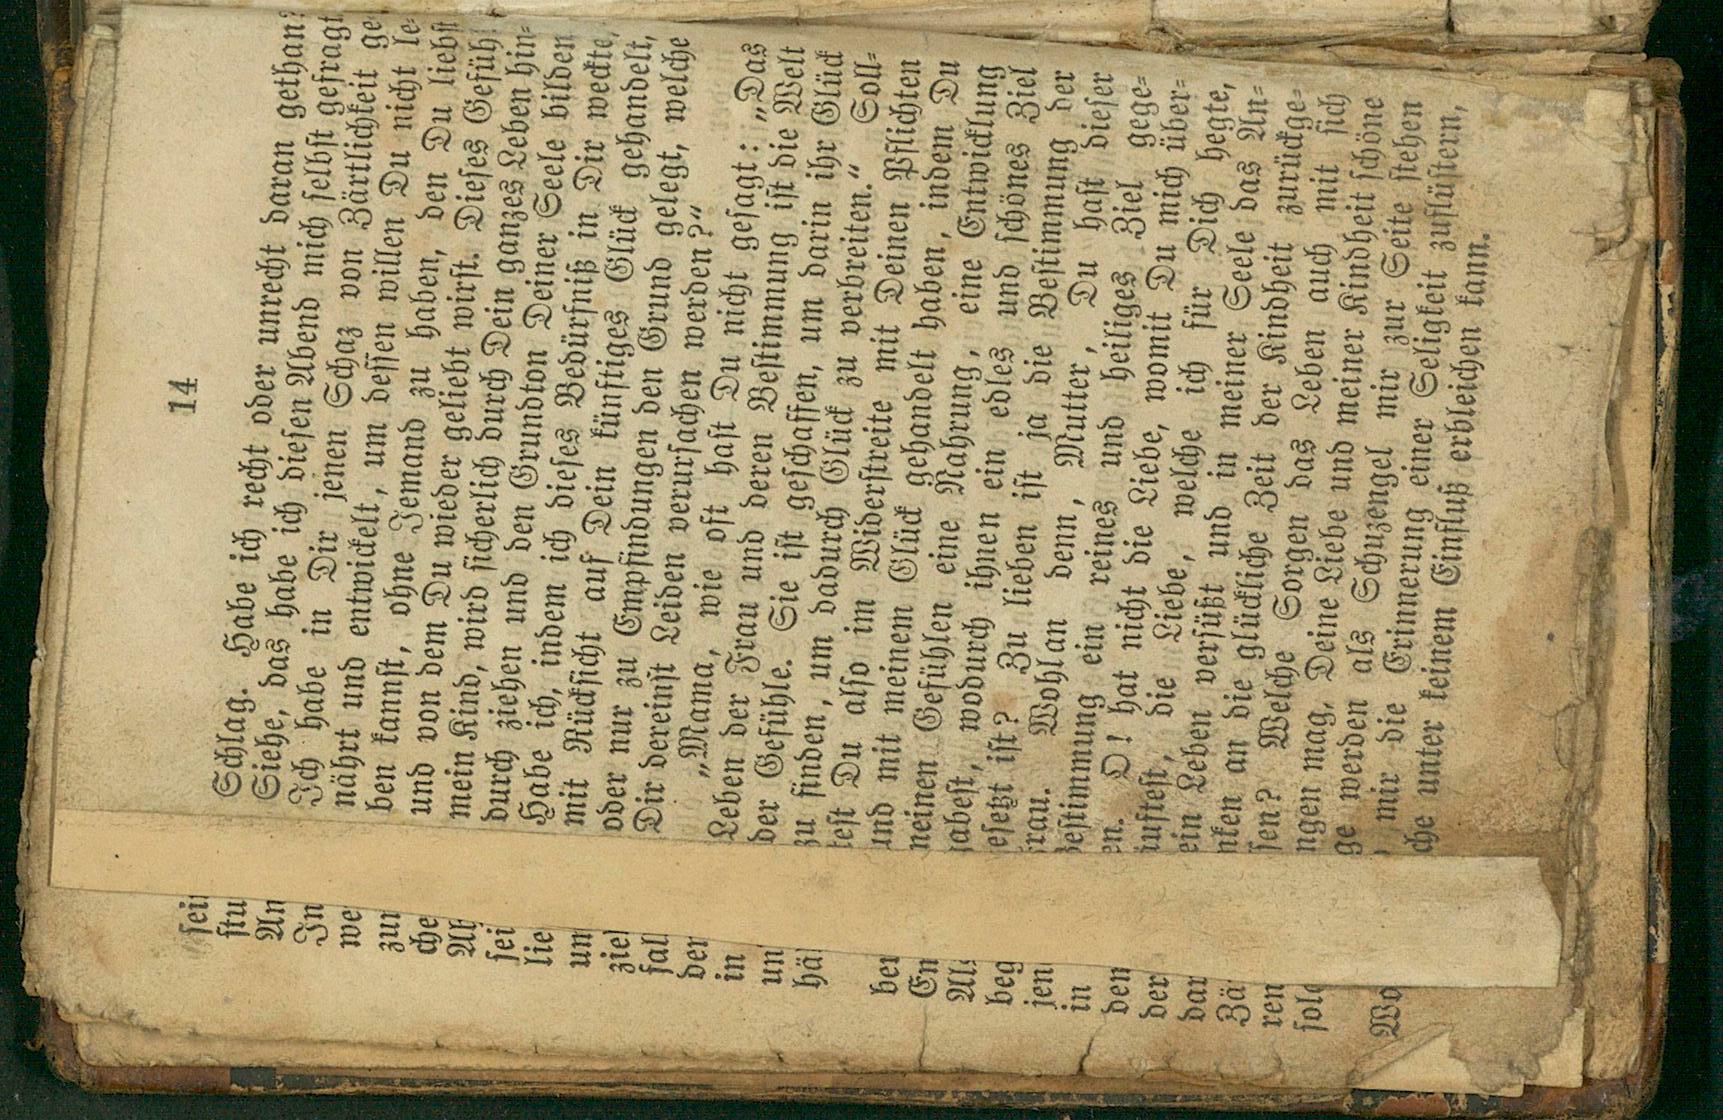 14
Schlag. Habe ich recht oder unrecht daran gethan?
Siehe, das habe ich diesen Abend mich selbst gefragt
Ich habe in Dir jenen Schaz von Zärtlichkeit ge
nährt und entwickelt, um dessen willen Du nicht le-
ben kannst, ohne Jemand zu haben, den Du liebst
und von dem Du wieder geliebt wirst. Dieses Gefühl
mein Kind, wird sicherlich durch Dein ganzes Leben hin-
durch ziehen und den Grundton Deiner Seele bilden
Habe ich, indem ich dieses Bedürfniß in Dir weckte,
mit Rücksicht auf Dein künftiges Glück gehandelt,
oder nur zu Empfindungen den Grund gelegt, welche
Dir dereinst Leiden verursachen werden?“
„Mama, wie oft hast Du nicht gesagt: „Das
Leben der Frau und deren Bestimmung ist die Welt
der Gefühle. Sie ist geschaffen, um darin ihr Glück
zu finden, um dadurch Glück zu verbreiten.“ Soll-
test Du also im Widerstreite mit Deinen Pflichten
und mit meinem Glück gehandelt haben, indem Du
meinen Gefühlen eine Nahrung, eine Entwicklung
gabest, wodurch ihnen ein edles und schönes Ziel
esetzt ist? Zu lieben ist ja die Bestimmung der
Frau. Wohlan denn, Mutter, Du hast dieser
Bestimmung ein reines und heiliges Ziel gege-
en. O! hat nicht die Liebe, womit Du mich über-
äuftest, die Liebe, welche ich für Dich hegte,
ein Leben versüßt und in meiner Seele das An-
nken an die glückliche Zeit der Kindheit zurückge-
sen? Welche Sorgen das Leben auch mit sich
ngen mag, Deine Liebe und meiner Kindheit schöne
ge werden als Schuzengel mir zur Seite stehen
mir die Erinnerung einer Seligkeit zuflüstern,
che unter keinem Einfluß erbleichen kann.
sei
stu
An
In
we
zur
che
Ab
sei
lie
un
ziel
fal
der
in
un
hä
ber
En
Als
beg
jen
in
den
der
dar
Zä
ren
solc
Wo